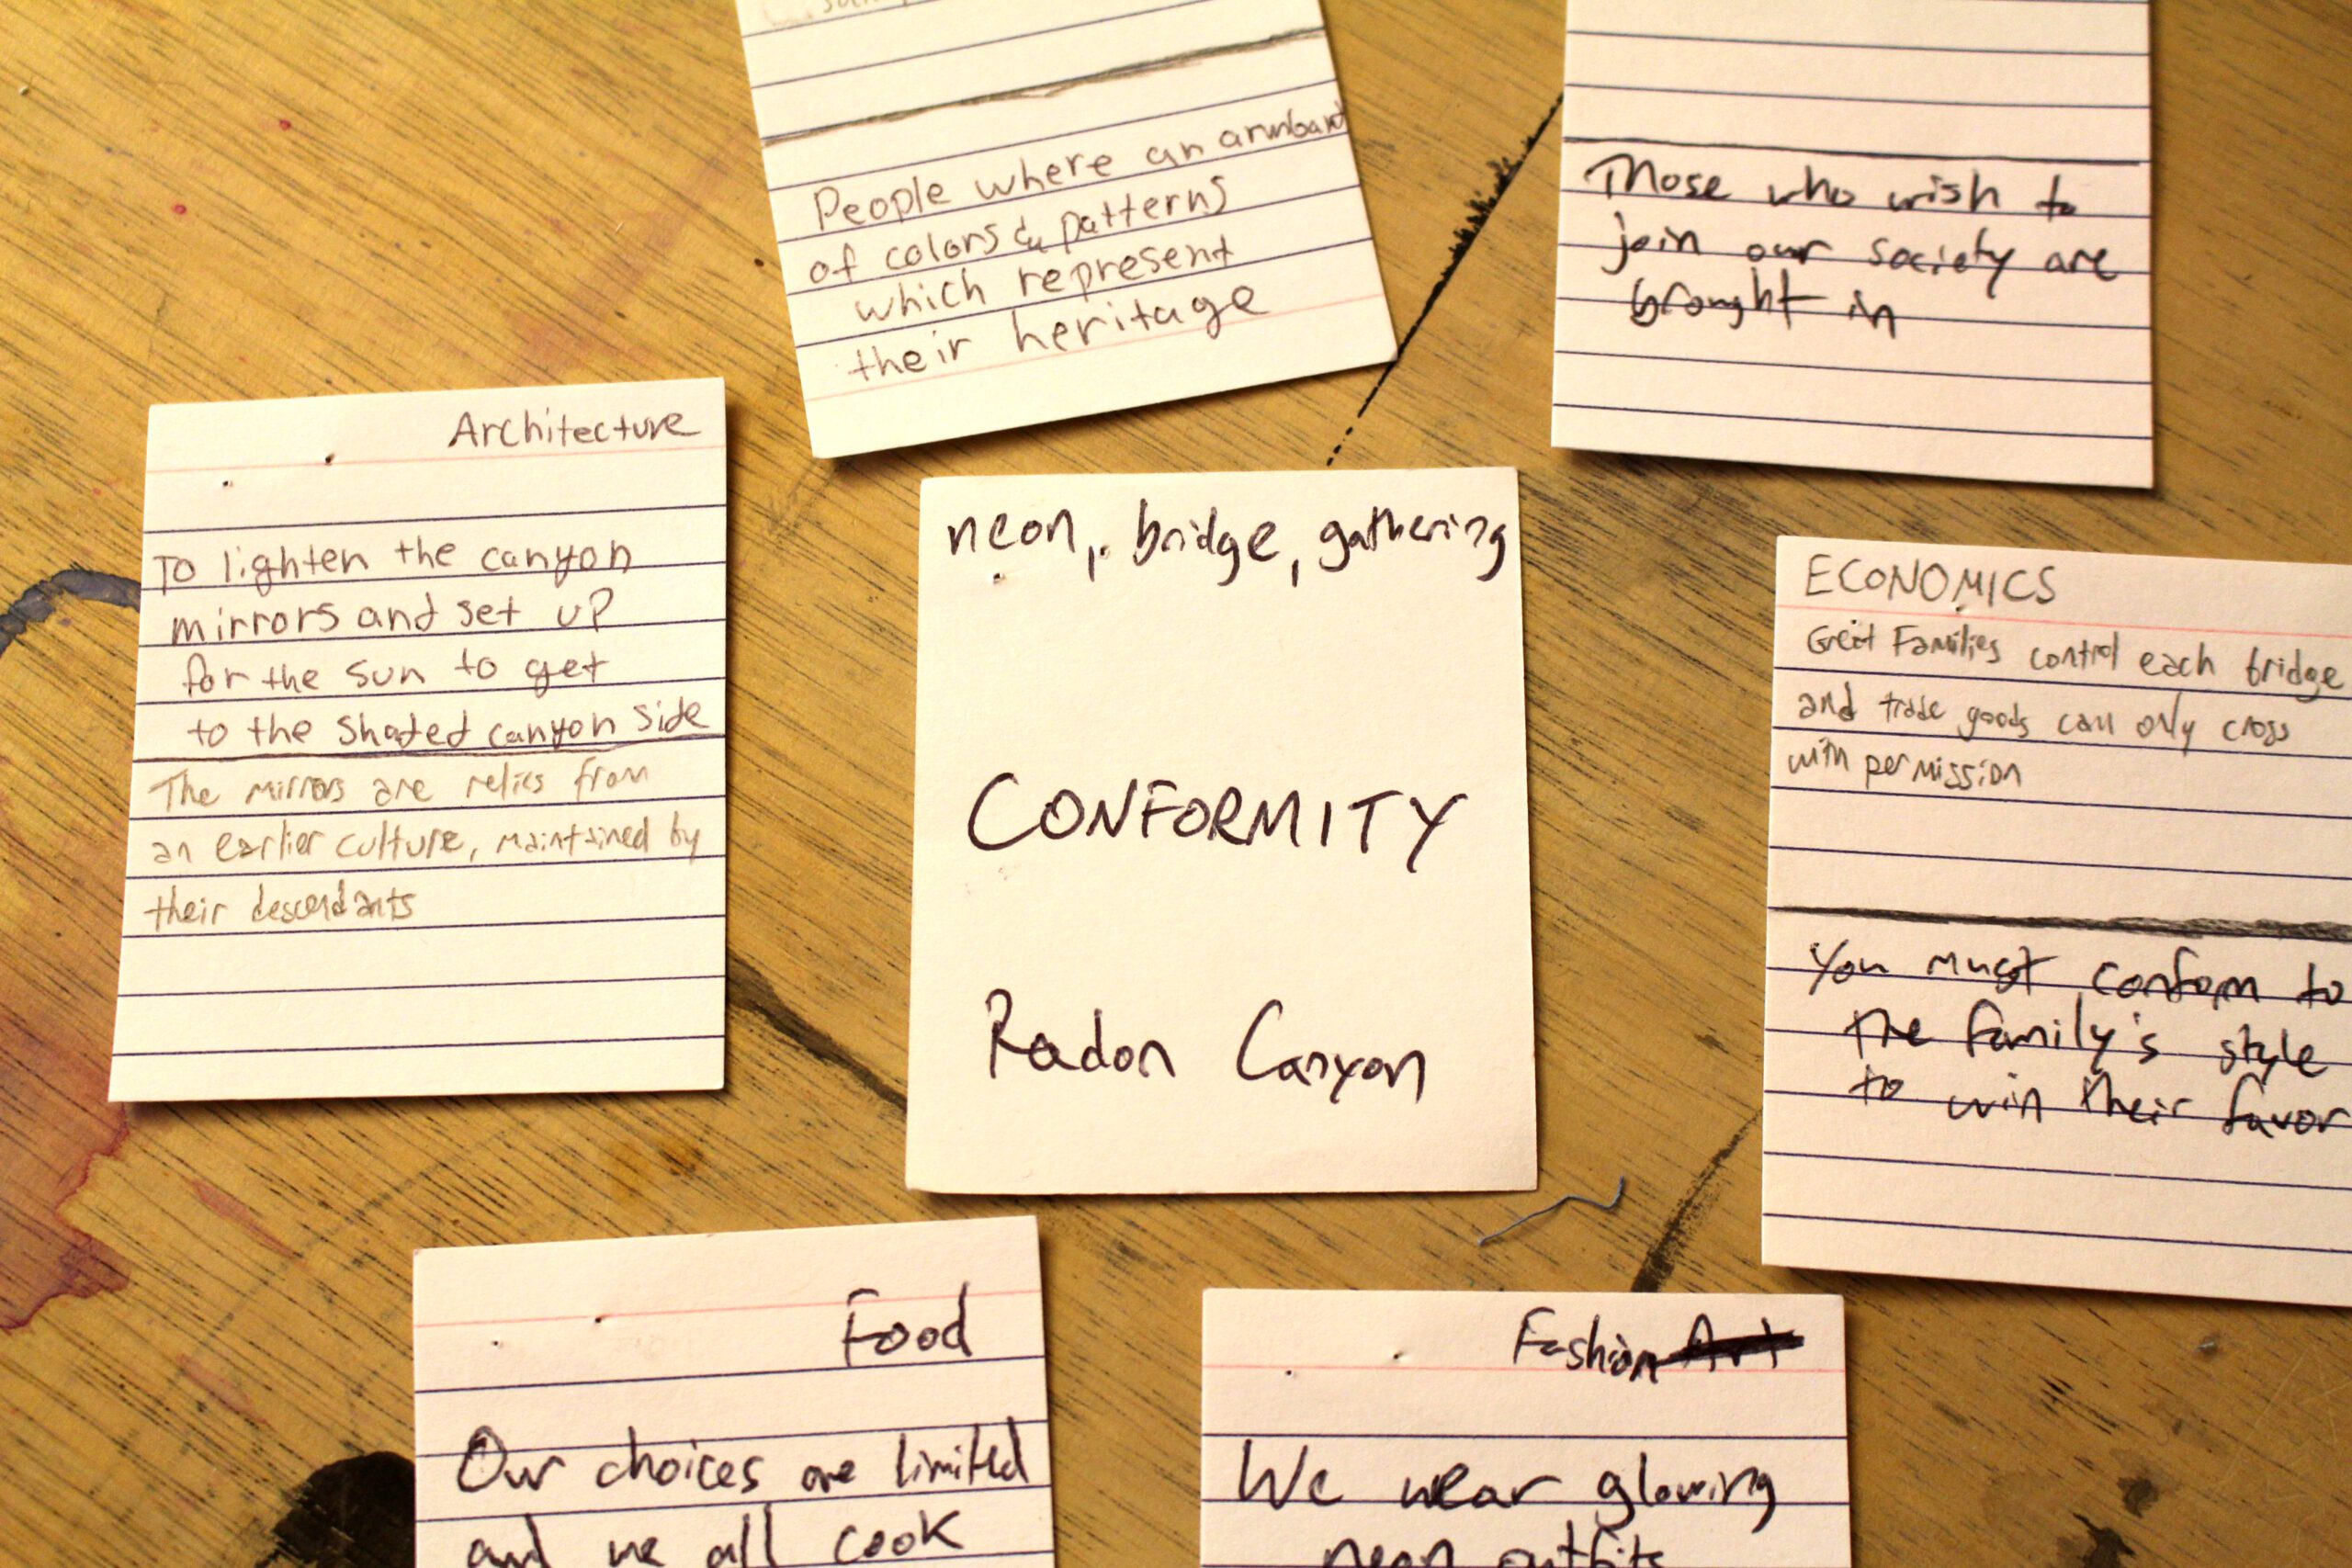 People where an armband
of colors & patterns
which represent
their heritage
Those who wish to
join our society are
brought in
Architecture
To lighten the canyon
mirrors and set up
for the sun to get
to the shaded canyon side
The mirrors are relics from
an earlier culture, maintained by
their descendants
neon, bridge, gathering
CONFORMITY
Radon Canyon
ECONOMICS
Great Families control each bridge
and trade goods can only cross
with permission
You must conform to
the family's style
to win their favor
Food
Our choices are limited
and we all cook
Fashion Art
We wear glowing
neon outfits